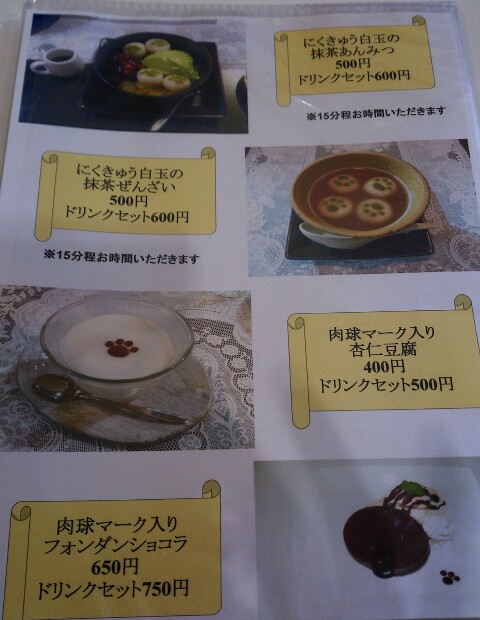 にくきゅう白玉の
抹茶あんみつ
500円
ドリンクセット600円
※15分程お時間いただきます
にくきゅう白玉の
抹茶ぜんざい
500円
ドリンクセット600円
※15分程お時間いただきます
肉球マーク入り
杏仁豆腐
400円
ドリンクセット500円
肉球マーク入り
フォンダンショコラ
650円
ドリンクセット750円